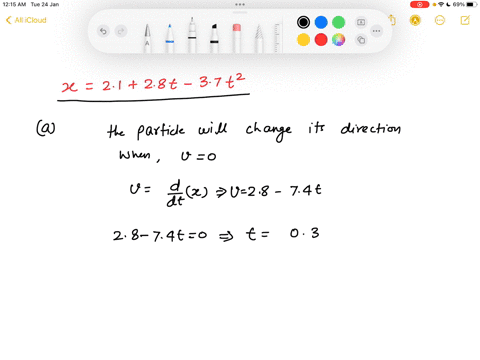 12:15 AM Tue 24 Jan
69%
All iCloud
x = 2.1 + 2.8t - 3.7t²
(a) the particle will change its direction
when, v = 0
v = d/dt (x) ⇒ v = 2.8 - 7.4t
2.8 - 7.4t = 0 ⇒ t = 0.3